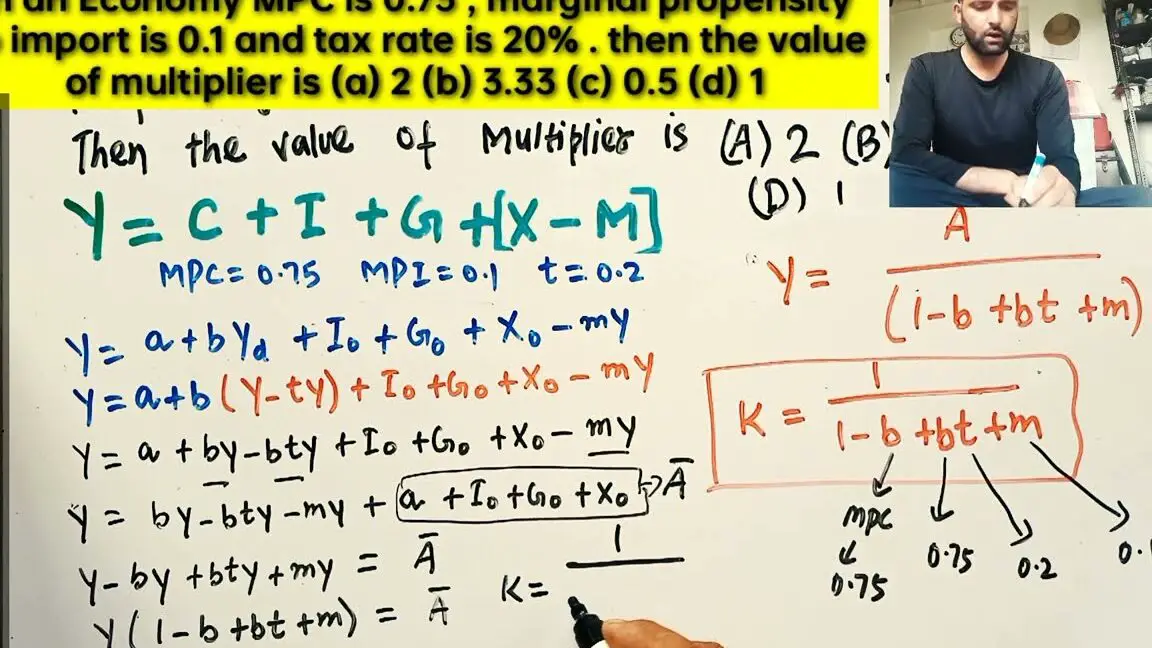 an Economy MPC is 0.75 , marginal propensity
import is 0.1 and tax rate is 20% . then the value
of multiplier is (a) 2 (b) 3.33 (c) 0.5 (d) 1
Then the value of Multiplier is (A) 2 (B)
(D) 1
Y = C + I + G + [X - M]
MPC = 0.75 MPI = 0.1 t = 0.2
Y = a + b Yd + I₀ + G₀ + X₀ - mY
Y = a + b (Y - tY) + I₀ + G₀ + X₀ - mY
Y = a + by - bty + I₀ + G₀ + X₀ - my
Y = by - bty - my + a + I₀ + G₀ + X₀ → Ā
Y - by + bty + my = Ā
Y (1 - b + bt + m) = Ā
K = 1
A
Y =
(1 - b + bt + m)
1
K =
1 - b + bt + m
mpc
0.75 0.2 0.
0.75